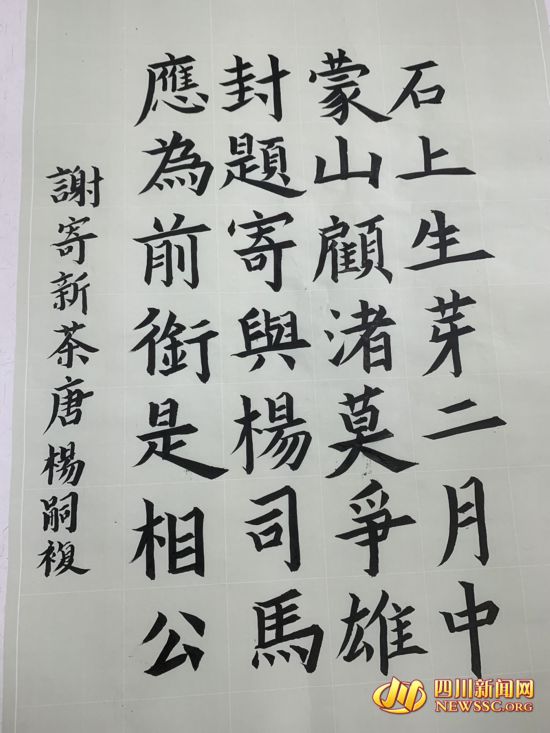 石上生芽二月中
蒙山顧渚莫爭雄
封題寄與楊司馬
應為前銜是相公
謝寄新茶唐楊嗣複
四川新闻网
NEWSSC.ORG